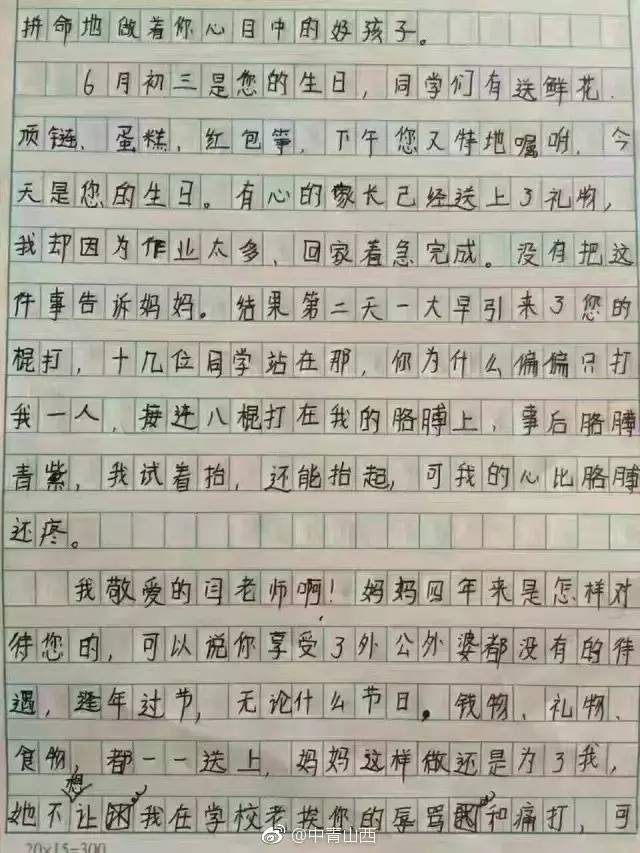 拼命地做着你心目中的好孩子。
6月初三是您的生日，同学们有送鲜花、
项链、蛋糕，红包等，下午您又特地嘱咐，今
天是您的生日。有心的家长已经送上了礼物，
我却因为作业太多，回家着急完成。没有把这
件事告诉妈妈。结果第二天一大早引来了您的
棍打，十几位同学站在那，你为什么偏偏只打
我一人，接连八棍打在我的胳膊上，事后胳膊
青紫，我试着抬，还能抬起，可我的心比胳膊
还疼。
我敬爱的闫老师啊！妈妈四年来是怎样对
待您的，可以说你享受了外公外婆都没有的待
遇，逢年过节，无论什么节日。钱物、礼物、
食物，都一一送上，妈妈这样做还是为了我，
她不想让我在学校老挨你的辱骂和痛打，可
20×15=300
@中青山西